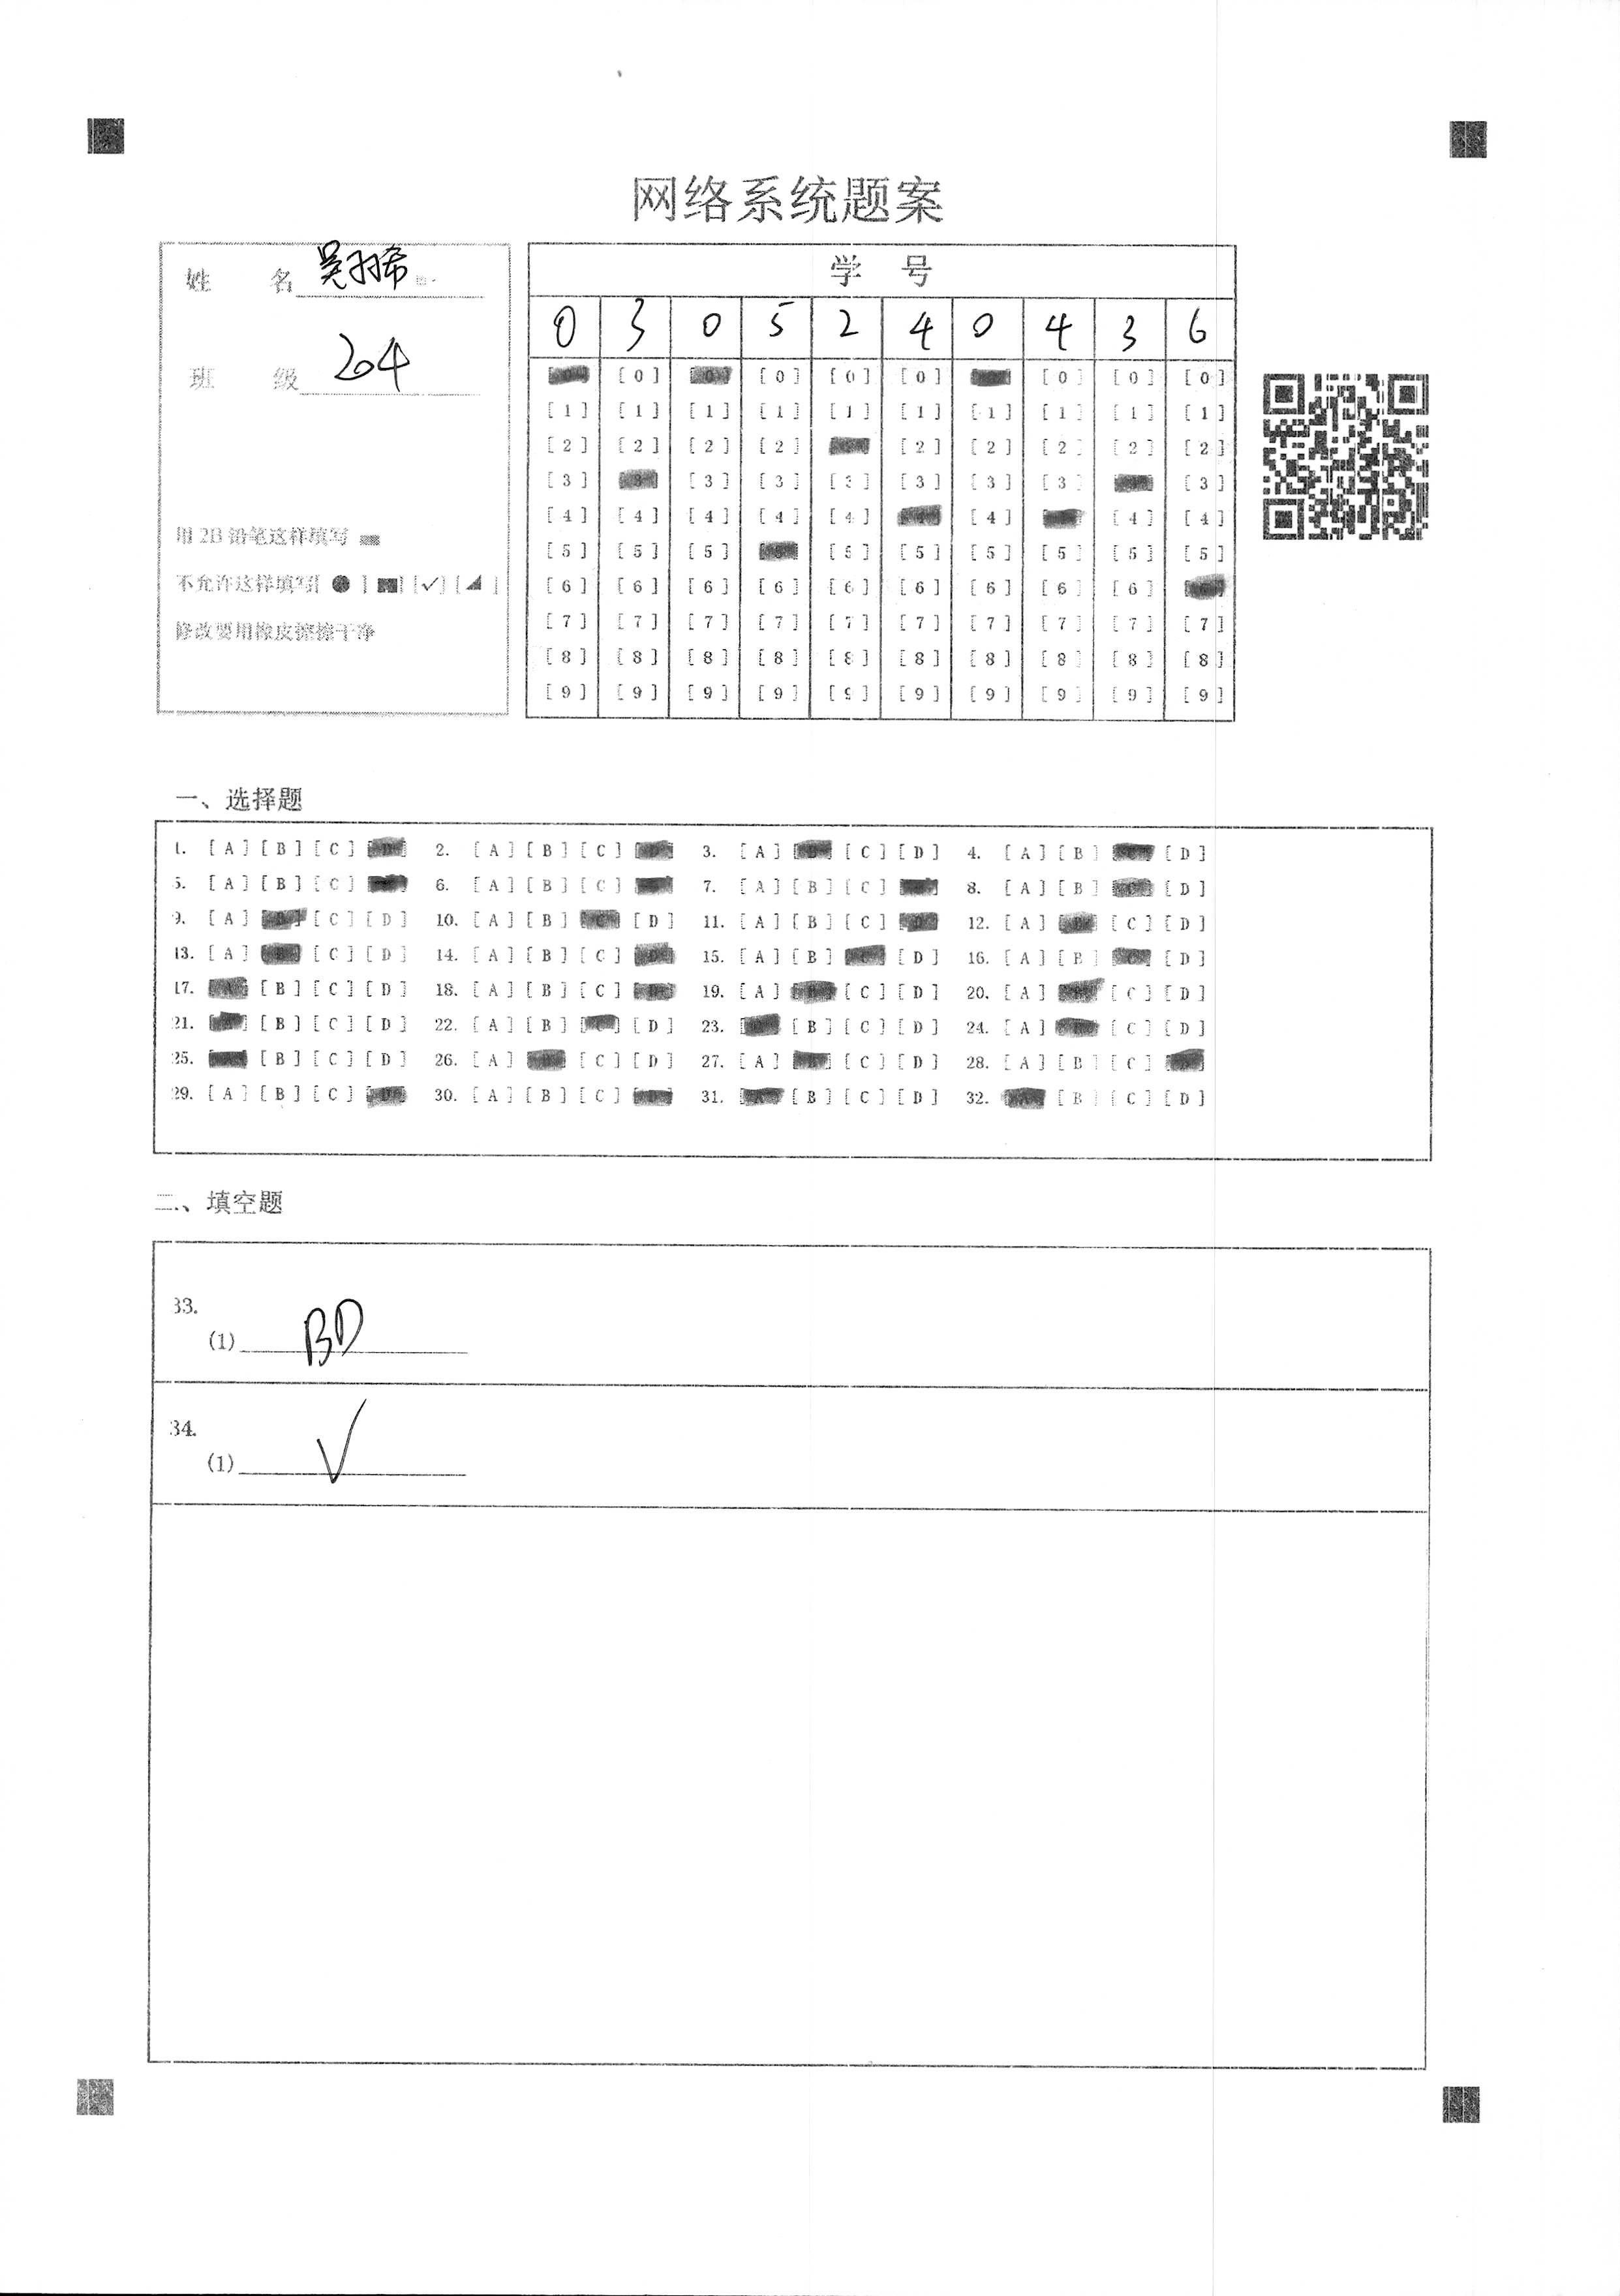 网络系统题案
姓 名 吴羽希
班 级 204
用 2B 铅笔这样填写
不允许这样填写[ ● ] [■] [✓] [◢ ]
修改要用橡皮擦擦干净
学 号
0 3 0 5 2 4 0 4 3 6
[0] [0] [0] [0] [0] [0] [0]
[1] [1] [1] [1] [1] [1] [1] [1] [1] [1]
[2] [2] [2] [2] [2] [2] [2] [2] [2]
[3] [3] [3] [3] [3] [3] [3] [3]
[4] [4] [4] [4] [4] [4] [4] [4]
[5] [5] [5] [5] [5] [5] [5] [5] [5]
[6] [6] [6] [6] [6] [6] [6] [6] [6]
[7] [7] [7] [7] [7] [7] [7] [7] [7] [7]
[8] [8] [8] [8] [8] [8] [8] [8] [8] [8]
[9] [9] [9] [9] [9] [9] [9] [9] [9] [9]
一、选择题
1. [A] [B] [C] [D] 2. [A] [B] [C] [D] 3. [A] [B] [C] [D] 4. [A] [B] [C] [D]
5. [A] [B] [C] [D] 6. [A] [B] [C] [D] 7. [A] [B] [C] [D] 8. [A] [B] [C] [D]
9. [A] [B] [C] [D] 10. [A] [B] [C] [D] 11. [A] [B] [C] [D] 12. [A] [B] [C] [D]
13. [A] [B] [C] [D] 14. [A] [B] [C] [D] 15. [A] [B] [C] [D] 16. [A] [B] [C] [D]
17. [A] [B] [C] [D] 18. [A] [B] [C] [D] 19. [A] [B] [C] [D] 20. [A] [B] [C] [D]
21. [A] [B] [C] [D] 22. [A] [B] [C] [D] 23. [A] [B] [C] [D] 24. [A] [B] [C] [D]
25. [A] [B] [C] [D] 26. [A] [B] [C] [D] 27. [A] [B] [C] [D] 28. [A] [B] [C] [D]
29. [A] [B] [C] [D] 30. [A] [B] [C] [D] 31. [A] [B] [C] [D] 32. [A] [B] [C] [D]
二、填空题
33.
(1) BD
34.
(1) √